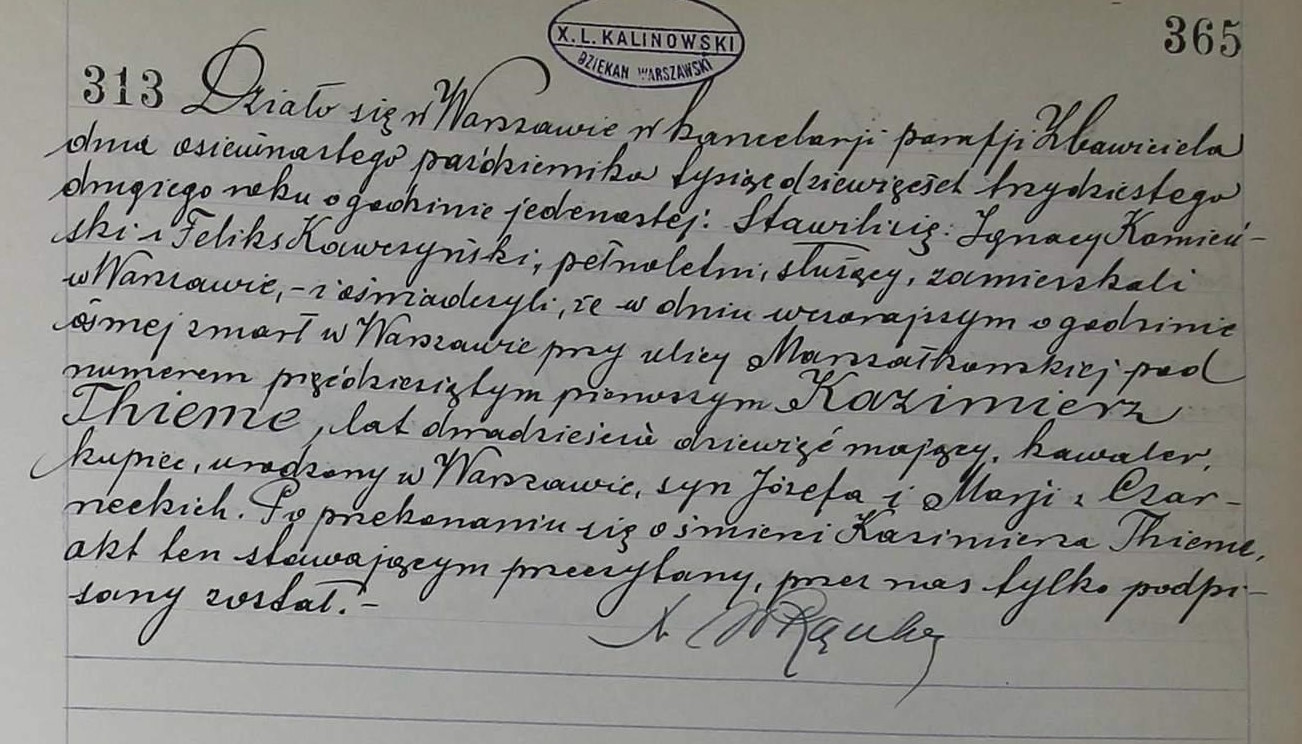 X. L. KALINOWSKI
DZIEKAN WARSZAWSKI
365
313 Działo się w Warszawie w kancelarji parafji Zbawiciela
dnia osiemnastego października tysiąc dziewięćset trzydziestego
drugiego roku o godzinie jedenastej: Stawili się: Ignacy Kamień-
ski i Feliks Kawczyński, pełnoletni, służący, zamieszkali
w Warszawie, - i oświadczyli, że w dniu wczorajszym o godzinie
ósmej zmarł w Warszawie przy ulicy Marszałkowskiej pod
numerem pięćdziesiątym pierwszym Kazimierz
Thieme, lat dwadzieścia dziewięć mający, kawaler,
kupiec, urodzony w Warszawie, syn Józefa i Marji z Czar-
neckich. Po przekonaniu się o śmierci Kazimierza Thieme,
akt ten stawającym przeczytany, przez nas tylko podpi-
sany został. -